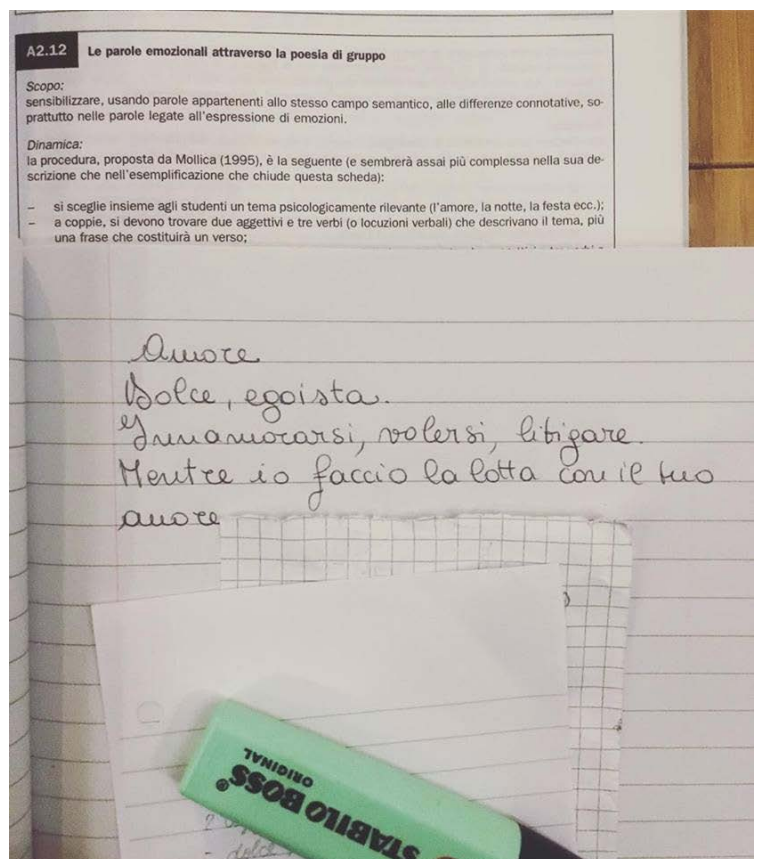 A2.12 Le parole emozionali attraverso la poesia di gruppo
Scopo:
sensibilizzare, usando parole appartenenti allo stesso campo semantico, alle differenze connotative, so-
prattutto nelle parole legate all'espressione di emozioni.
Dinamica:
la procedura, proposta da Mollica (1995), è la seguente (e sembrerà assai più complessa nella sua de-
scrizione che nell'esemplificazione che chiude questa scheda):
– si sceglie insieme agli studenti un tema psicologicamente rilevante (l'amore, la notte, la festa ecc.);
– a coppie, si devono trovare due aggettivi e tre verbi (o locuzioni verbali) che descrivano il tema, più
una frase che costituirà un verso;
Amore
Dolce, egoista.
Innamorarsi, volersi, litigare.
Mentre io faccio la lotta con il tuo
amore
STABILO BOSS®
ORIGINAL